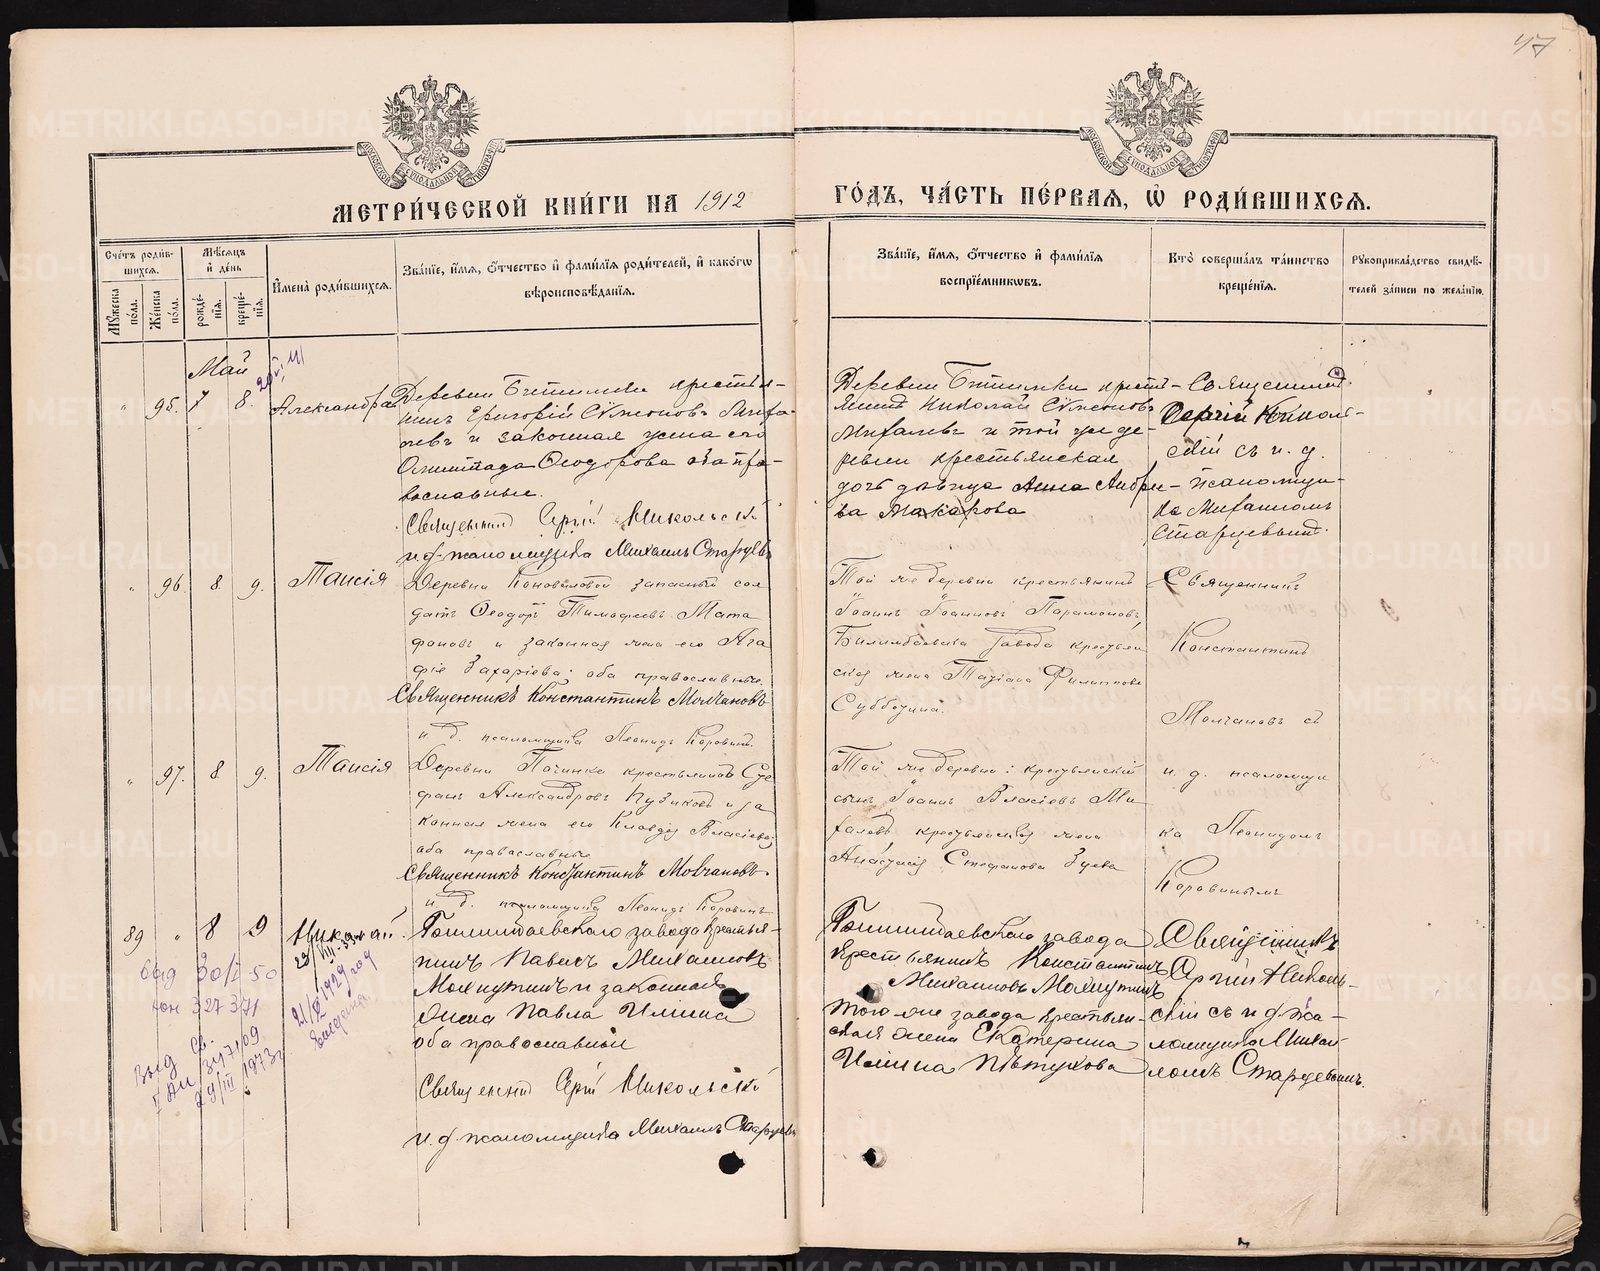 47
МЕТРИ́ЧЕСКОЙ КНИ́ГИ НА 1912
ГО́ДЪ, ЧА́СТЬ ПЕ́РВАЯ, Ѡ҆ РОДИ́ВШИХСЯ.
Сче́тъ роди́в-
шихся.
Мꙋ́жеска по́ла.
Же́нска по́ла.
Мѣ́сяцъ и҆ де́нь
рожде́-
нїя.
креще́-
нїя.
И҆мена̀ роди́вшихся.
Зва́нїе, и҆́мя, ѻ҆́тчество и҆ фами́лїя роди́телей, и҆ како́гѡ
вѣроисповѣ́данїя.
Зва́нїе, и҆́мя, ѻ҆́тчество и҆ фами́лїя
воспрїе́мникѡвъ.
Кто̀ соверша́лъ та́инство
креще́нїя.
Рꙋкоприкла́дство свидѣ́-
телей за́писи по жела́нїю.
Май
" 95. 7 8. Александра
Деревни крестья-
нинъ Григорій Сѵмеоновъ
и законная жена его
Олимпіада Ѳеодорова оба пра-
вославные.
Священникъ Сергій Никольскій
и. д. псаломщика Михаилъ Старцевъ
Деревни крестья-
Николай Сѵмеоновъ
и той же де-
ревни крестьянская
дочь дѣвица Анна Андре-
ва Макарова
Священникъ
Сергій Николь-
скій съ и. д.
псаломщи-
ка Михаиломъ
Старцевымъ.
" 96. 8 9. Таисія
Деревни Коноваловой запасный сол
датъ Ѳеодоръ Тимофеевъ Мата
фоновъ и законная жена его Ага
фія Захаріева; оба православные.
Священникъ Константинъ Молчановъ
и. д. псаломщика Леонидъ Коровинъ.
Той же деревни крестьянинъ
Іоаннъ Іоанновъ Парамоновъ
Билимбаевска завода крестьян
ская жена Татіана Филиппова
Субботина.
Священникъ
Константинъ
Молчановъ съ
" 97. 8 9. Таисія
Деревни Починка крестьянинъ Сте
фанъ Александровъ Пузиковъ и за
конная жена его Клавдія Власіева;
оба православные
Священникъ Константинъ Молчановъ.
и. д. псаломщика Леонидъ Коровинъ
Той же деревни: крестьянскій
сынъ Іоаннъ Власіевъ Ми
галевъ крестьянская жена
Анастасія Стефанова Зуева
и. д. псаломщи
ка Леонидомъ
Коровинымъ
89 " 8 9 Николай
Билимбаевскаго завода крестья-
нинъ Павелъ Михаиловъ
Махнутинъ и законная
жена Павла Ильина
оба православные
Священникъ Сергій Никольскій
и. д. псаломщика Михаилъ Старцевъ
Билимбаевскаго завода
крестьянинъ Константинъ
Михаиловъ Махнутинъ
того же завода крестьян-
ская жена Екатерина
Ильина Пѣтухова
Священникъ
Сергій Николь-
скій съ и д пса-
ломщика Михаи-
ломъ Старцевымъ.
30/I 50
327371
21/X 1929 год
Выд св.
29/III 1973г